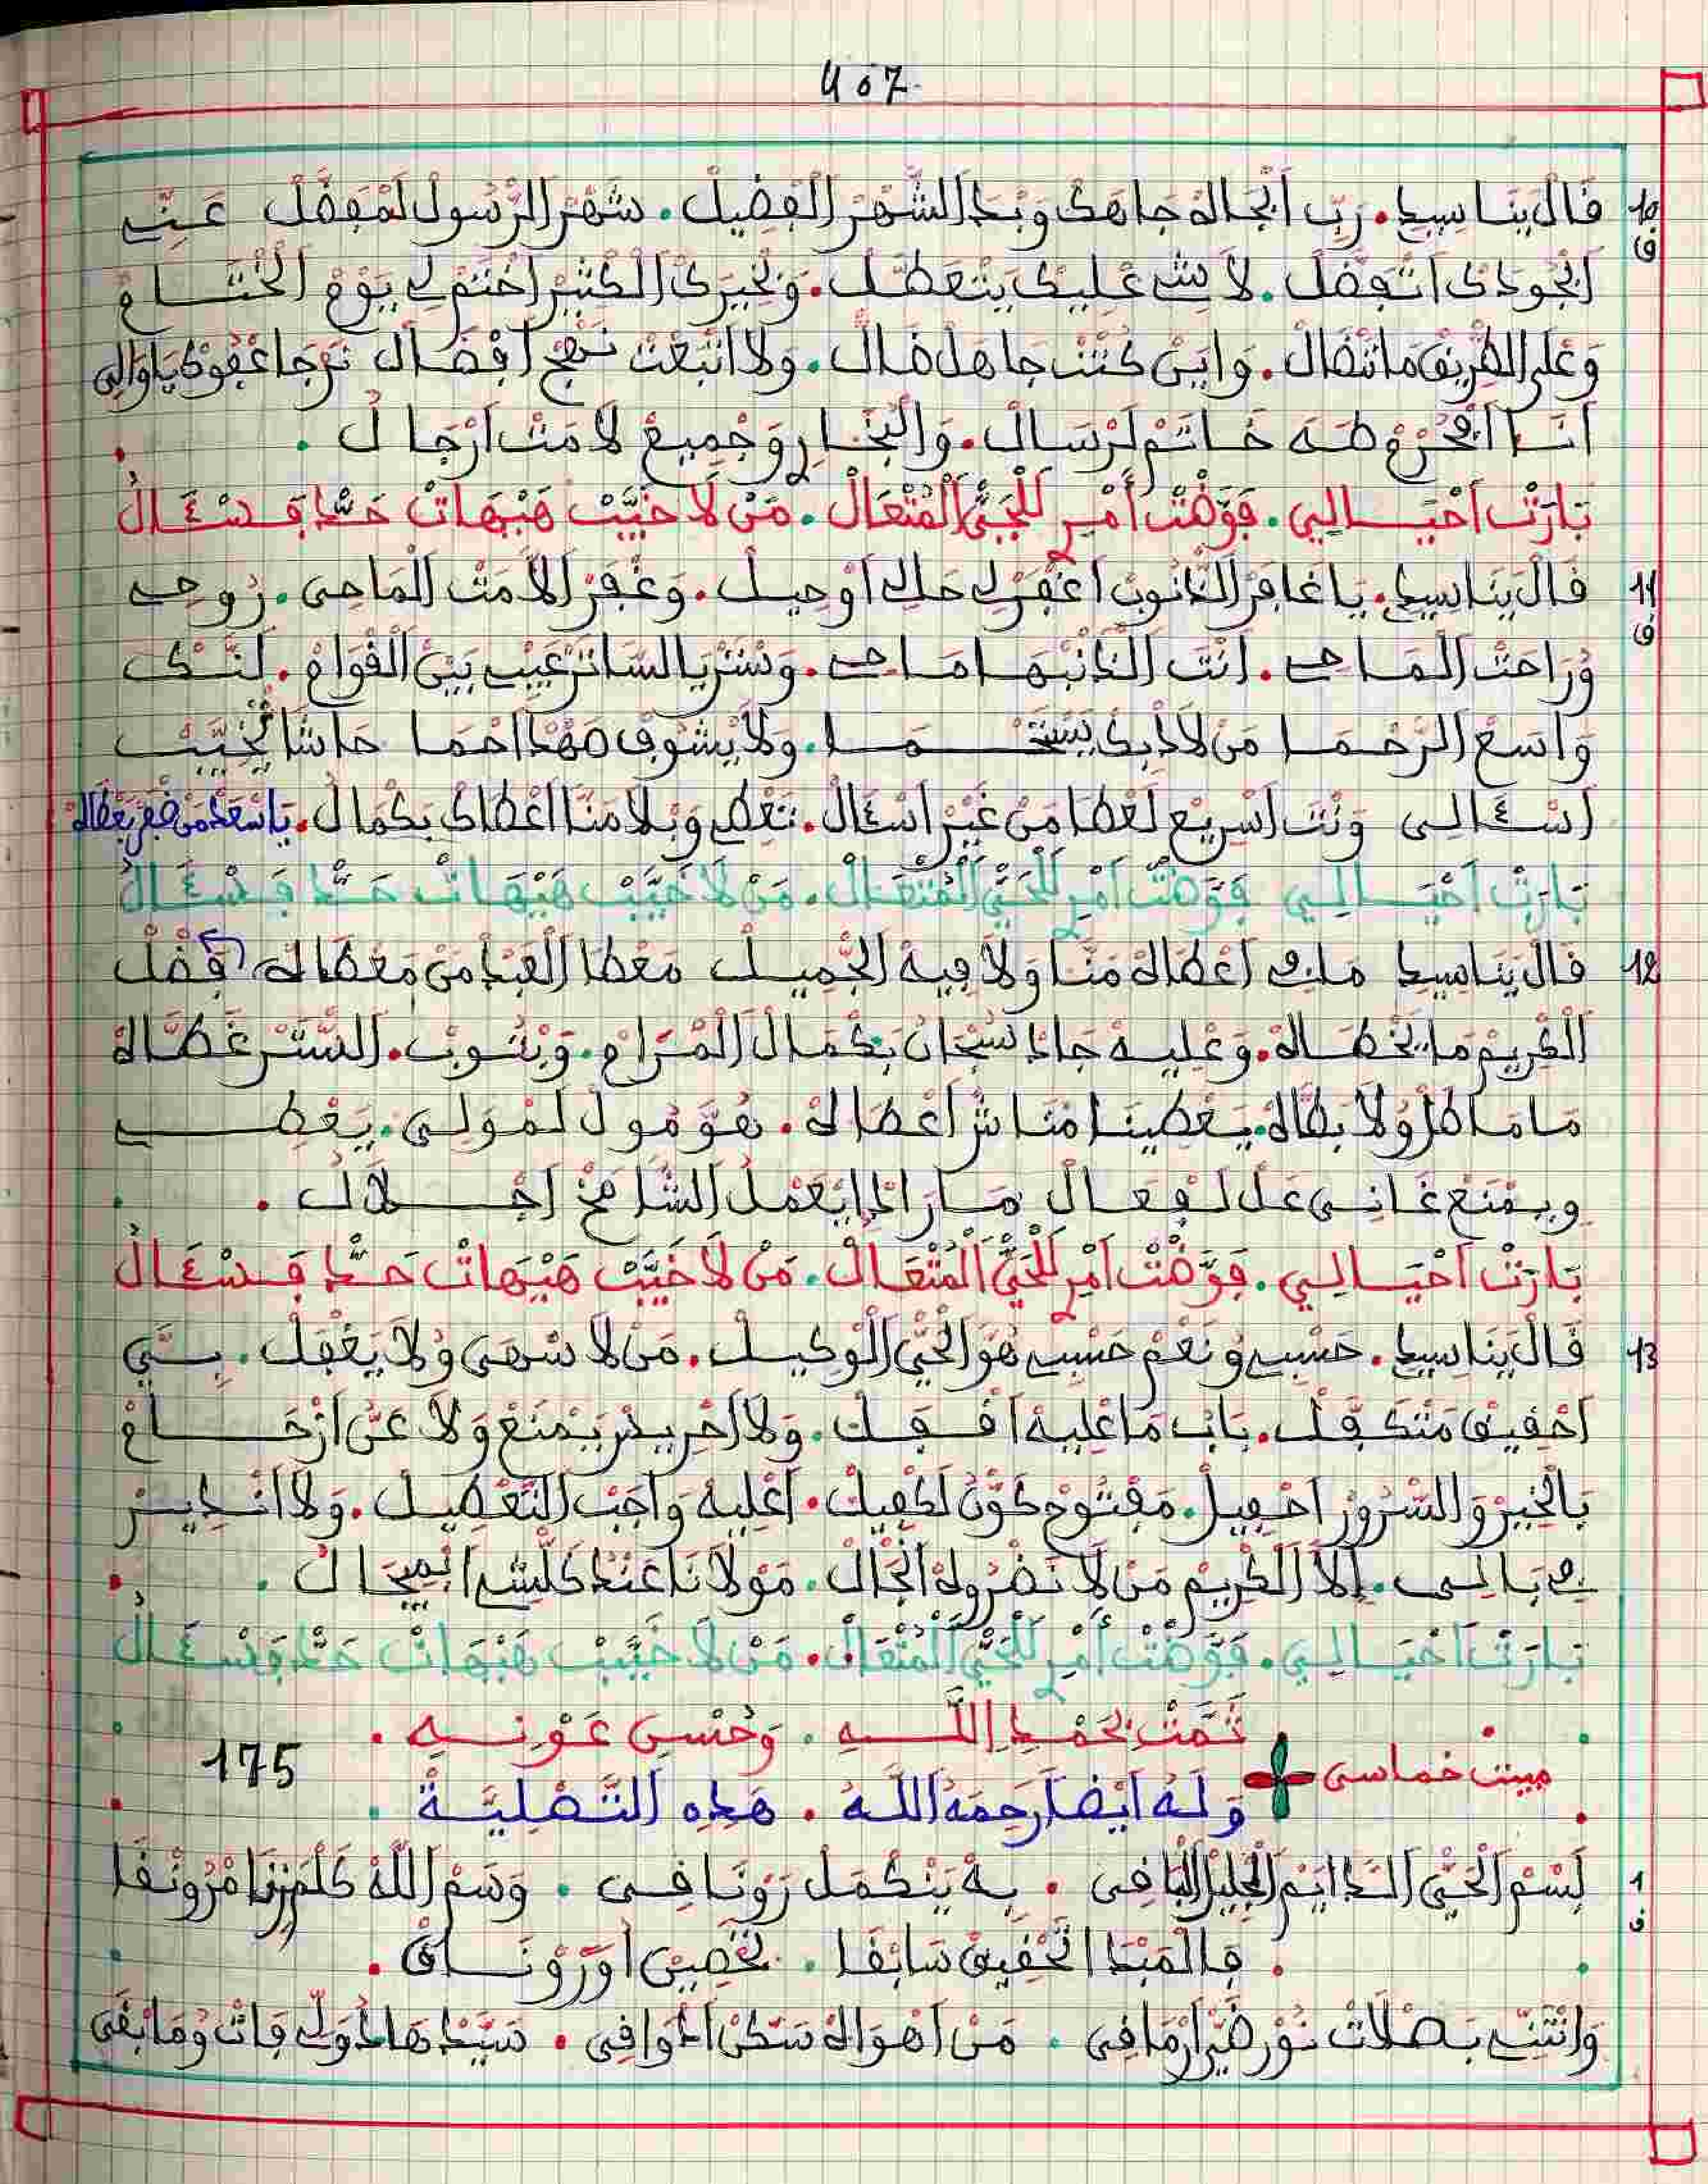 407
10 فَالْ بَنَاسِيطِ. رَبِّ ابْجَاهْ جَاهَكْ وَبْدَ الشّْهَرْ الْفْضِيلْ. شَهْرْ الرَّسُولْ لَمْفَضَّلْ عَنِّي
ف
ابْجُودَكْ اتْفَضَّلْ. لَا شِي عْلِيكْ يَتْعَطَّلْ. وَبْخِيرَكْ الْكْثِيرْ اخْتَمْ لِي يَوْمْ الْخْتَامْ
وَعْلَى الطّْرِيقْ مَا نَنْضَالْ. وَايِنْ كُنْتْ جَاهَلْ ضَالْ. وَلَا اتْبَعْتْ نَهْجْ افْضَالْ نَرْجَا عَفْوَكْ يَا وَالِي
انَا ابْحُرْمْ طَهَ خَاتَمْ لَرْسَالْ. وَالْبُخَارِي وَجْمِيعْ لَامَتْ ارْجَالْ.
بَارَتْ احْيَالِي. فَوَّضْتْ أَمْرِي لَلْحَيّْ الْمُتْعَالْ. مَنْ لَا خَيَّبْ هَيْهَاتْ حَدّْ فَسْئَالُ
11 فَالْ بَنَاسِيطِ. يَا غَافَرْ الذّْنُوبْ اغْفَرْ لِي حَالِي اوْحِيلْ. وَغْفَرْ الْأَمَتْ الْمَاحِي. رُوحِي
ف
وُرَاحَتْ الْمَاحِي. انْتَ الذَنْبْهَا مَاحِي. وَسْتَرْ يَا السَّاتَرْ عَيْبِي بَيْنْ الْقْوَامْ. لَنَّكْ
وَاسَعْ الرَّحْمَا مَنْ لَاذْ بِكْ يَسْتَحْمَا. وَلَا يْشُوفْ مَهْدْ احْمَا حَاشَا يْخَيَّبْ
اسْئَالِي وَنْتَ اسْرِيعْ لَعْطَا مَنْ غَيْرْ اسْئَالْ. تَعْطِي وَبْلَا مَنَّا اعْطَاكْ بَكْمَالْ.
بَارَتْ احْيَالِي فَوَّضْتْ أَمْرِي لَلْحَيّْ الْمُتْعَالْ. مَنْ لَا خَيَّبْ هَيْهَاتْ حَدّْ فَسْئَالُ
12 فَالْ بَنَاسِيطِ مَا فِي اعْطَاهْ مَنَّا وَلَا فِيهْ الْجّْمِيلْ مَعْطَا الْعَبْدْ مَنْ مَعْطَاهْ فَضْلْ
الْكْرِيمْ مَا يْخْطَاهْ. وَعْلِيهْ جَادْ سُبْحَانْ بَكْمَالْ الْمْرَامْ. وَبْثُوبْ. السّْتَرْ غَطَّاهْ
مَا مَاطَلْ وُلَا بَطَّاهْ. يَعْطِينَا مَنَاشْ اعْطَاهْ. هُوَّ مُولْ لَمْوَلِي. يَعْطِي
وِيمْنَعْ غَانِي عَلْ لَفْعَالْ مَا رَادْ ايَعْمَلْ الشَّامَخْ اجْلَالْ.
بَارَتْ احْيَالِي. فَوَّضْتْ أَمْرِي لَلْحَيّْ الْمُتْعَالْ. مَنْ لَا خَيَّبْ هَيْهَاتْ حَدّْ فَسْئَالُ
13 فَالْ بَنَاسِيطِ. حَسْبِي وُنَعْمْ حَسْبِي هُوَ الْحَيّْ الْوْكِيلْ. مَنْ لَا سْهَى وُلَا يَغْفَلْ. بِيَّ
احْقِيقْ مَتْكَفَّلْ. بَابْ مَا عْلِيهْ اقْفَلْ. وَلَا اخْرِيدَرْ يَمْنَعْ وَلَا عَنّْ ازْحَامْ
بَالْخِيرْ وَالسّْرُورْ احْفِيلْ. مَفْتُوحْ كَوْنْ لَكْفِيلْ. اعْلِيهْ وَاجَبْ التَّعْطِيلْ. وَلَا انْدِيرْ
فِي بَالِي. إِلَّا الْكْرِيمْ مَنْ لَا نَضْرُولَهْ الْحَالْ. مَوْلَانَا عَنْدْ كَلّْشِي ابْمِيجَالْ.
بَارَتْ احْيَالِي. فَوَّضْتْ أَمْرِي لَلْحَيّْ الْمُتْعَالْ. مَنْ لَا خَيَّبْ هَيْهَاتْ حَدّْ فَسْئَالُ
تَمَّتْ بْحَمْدِ اللَّهِ. وَحُسْنِ عَوْنِهِ.
مبيت خماسي 175
وَلَهُ أَيْضًا رَحِمَهُ اللَّهُ. هَذِهِ التَّصْلِيَّةْ
1 بَسْمْ الْحَيّْ الدَّايَمْ الْجْلِيلْ الْبَاقِي. بِهْ يَتْكْمَلْ رَوْنَاقِي. وَسْمْ اللَّهْ كَلْمَتْنَا مْرَوْنْقَا
ف
فَالْمَبْدَا تَحْقِيقْ سَابْقَا. تْخْصِينْ اوْرَوْنَاقْ.
وَانْتَنِّي بَصْلَاتْ نُورْ ضَيّْ ارْمَاقِي. مَنْ اهْوَاهْ سَكْنْ ادْوَاقِي. سَيَّدْ هَادُو لِي فَاتْ وُمَا بْقَى